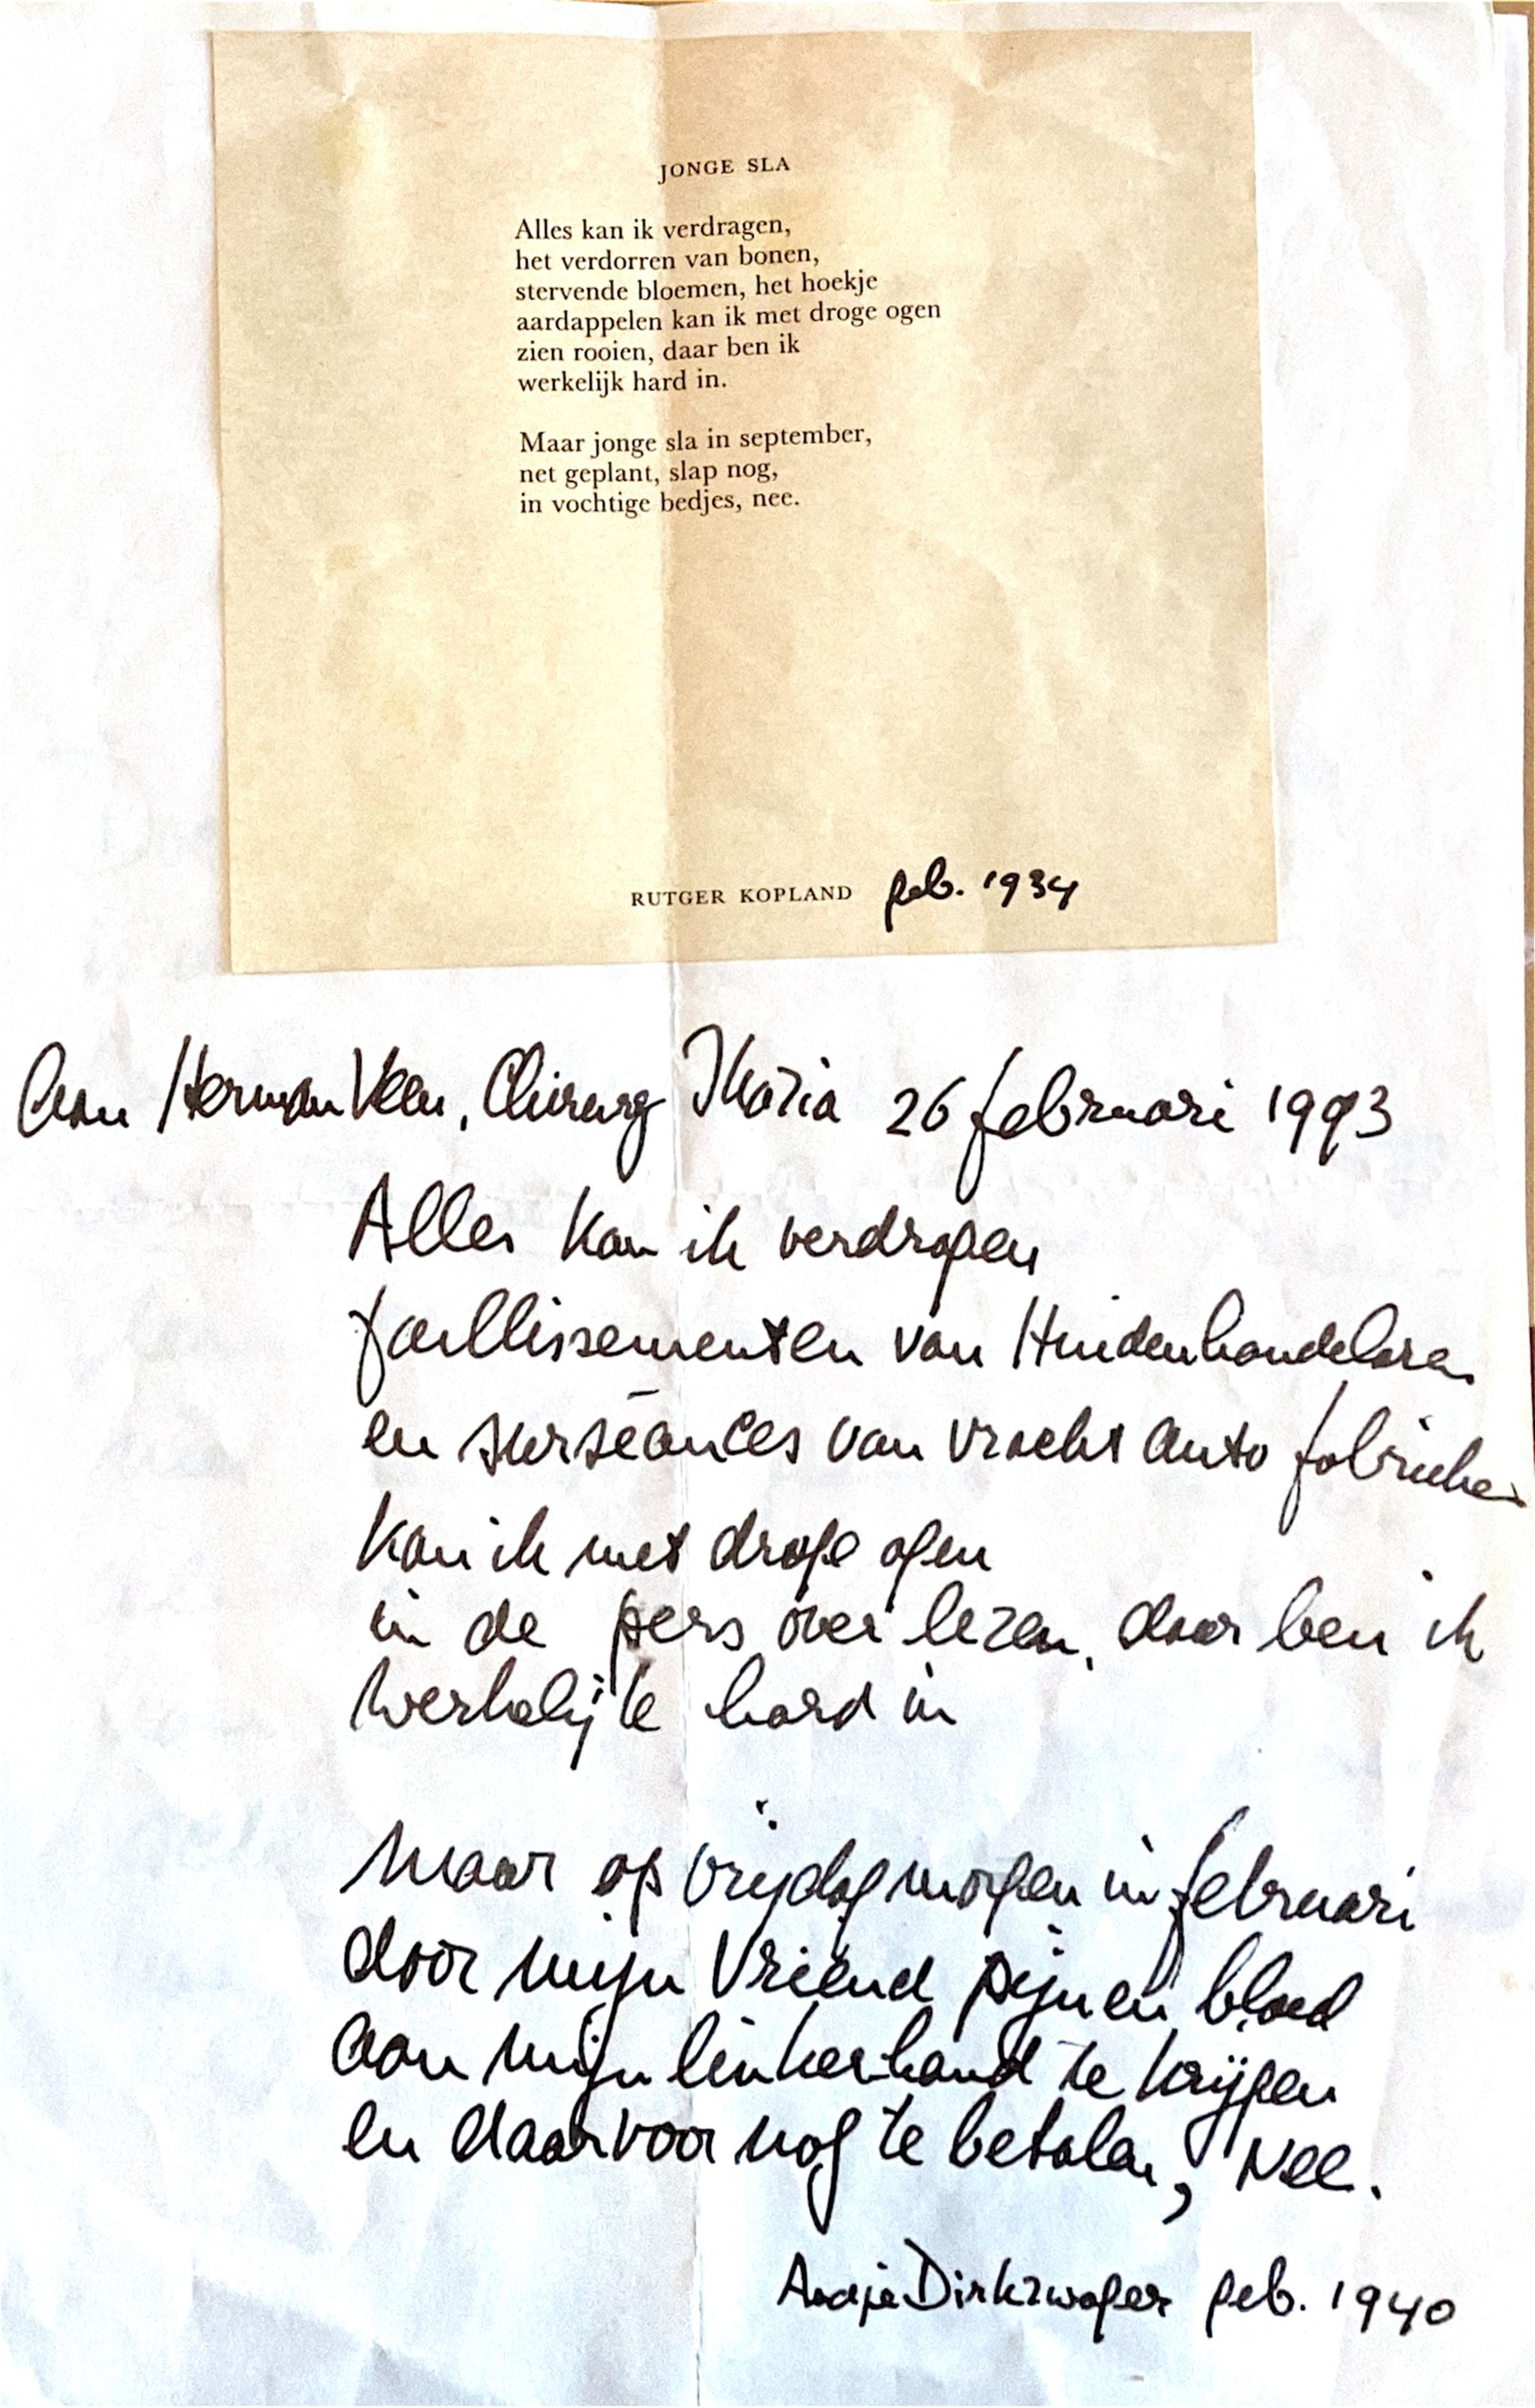 JONGE SLA
Alles kan ik verdragen,
het verdorren van bonen,
stervende bloemen, het hoekje
aardappelen kan ik met droge ogen
zien rooien, daar ben ik
werkelijk hard in.
Maar jonge sla in september,
net geplant, slap nog,
in vochtige bedjes, nee.
RUTGER KOPLAND geb. 1934
Aan Herman Veen, Chirurg Maria 26 februari 1993
Alles kan ik verdragen
faillissementen van Huidenhandelaren
en surséances van vrachtauto fabrieken
kan ik met droge ogen
in de pers over lezen, daar ben ik
werkelijk hard in
Maar op vrijdagmorgen in februari
door mijn vriend pijn en bloed
aan mijn linkerhand te krijgen
en daarvoor nog te betalen, Nee.
Dirkzwager geb. 1940